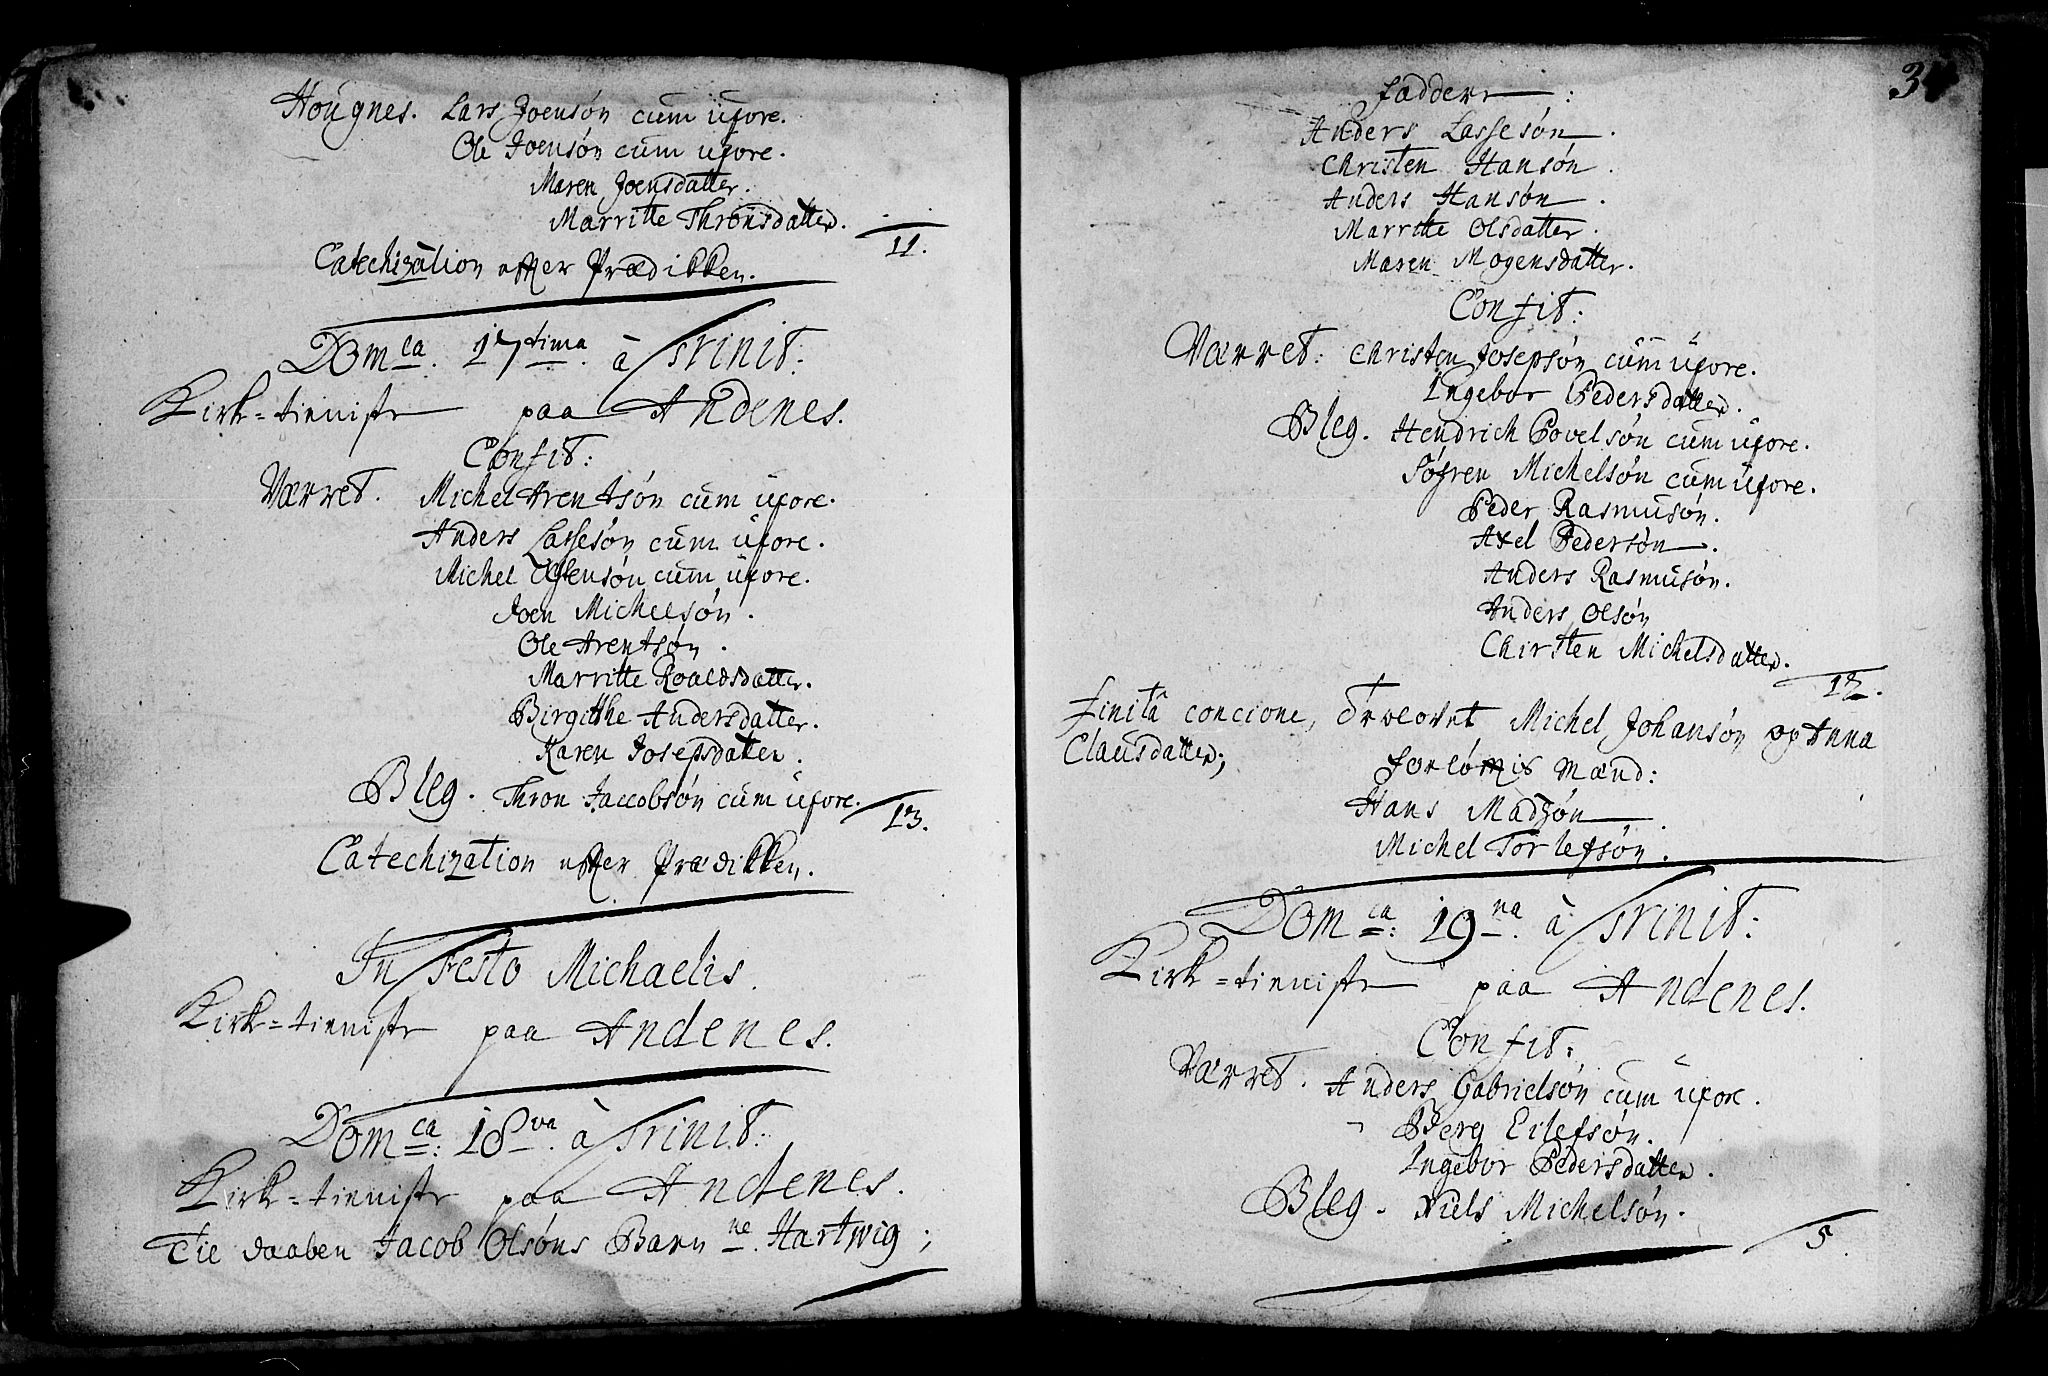 Hougnes. Lars Joensøn cum uxore.
Ole Joensøn cum uxore.
Maren Joensdatter.
Marritte Thronsdatter.
11.
Catechization efter Prædikken.
Domca. 17tima. à Trinit:
Kirk=tieniste paa Andenes.
Confit:
Værret. Michel Arentsøn cum uxore.
Anders Lassesøn cum uxore.
Michel cum uxore.
Joen Michelsøn.
Ole Arentsøn.
Marritte Roaldsdatter.
Birgitthe Andersdatter.
Karen Josepsdatter.
Bleg. Thron Jaccobsøn cum uxore.
13.
Catechization efter Prædikken.
In Festo Michaelis.
Kirk=tieniste paa Andenes.
Domca: 18va. à Trinit:
Kirk=tieniste paa Andenes.
Til daaben Jacob Olsøns Barn ne. Hartwig;
3
Faddere:
Anders Lassesøn.
Christen Hansøn.
Anders Hansøn.
Marritte Olsdatter.
Maren Mogensdatter.
Confit:
Værret: Christen Josepsøn cum uxore.
Ingebor Pedersdatter.
Bleg. Hendrich Povelsøn cum uxore.
Søfren Michelsøn cum uxore.
Peder Rasmusøn.
Axel Pedersøn.
Anders Rasmusøn.
Anders Olsøn
Chirsten Michelsdatter.
12.
Finitâ concione, Trolovet Michel Johansøn og Anna
Clausdatter;
Forløftis Mænd:
Hans Madzøn
Michel Torlefsøn.
Domca: 19na. à Trinit:
Kirk=tieniste paa Andenes.
Confit:
Værret. Anders Gabrielsøn cum uxore.
Berg Eilefsøn.
Ingebor Pedersdatter.
Bleg. Niels Michelsøn.
5.